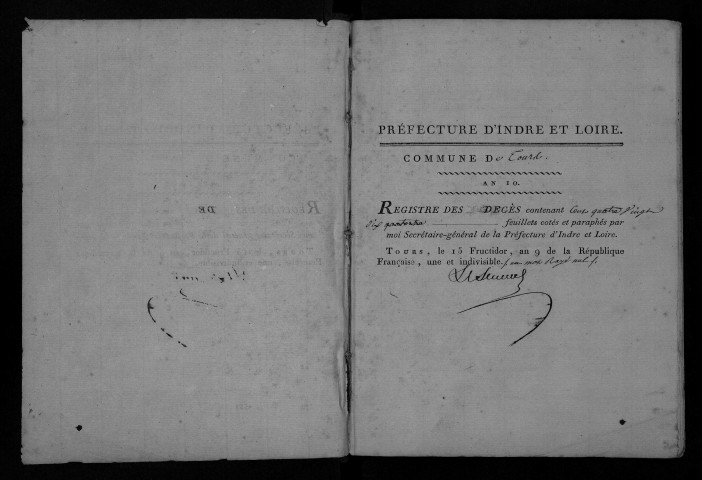 PRÉFECTURE D'INDRE ET LOIRE.
COMMUNE De Tours.
AN 10.
REGISTRE DES DECÈS contenant Cent quatre Vingt
quatorze feuillets cotés et paraphés par
moi Secrétaire-général de la Préfecture d'Indre et Loire.
TOURS, le 15 Fructidor, an 9 de la République
Française, une et indivisible. un mot Rayé nul